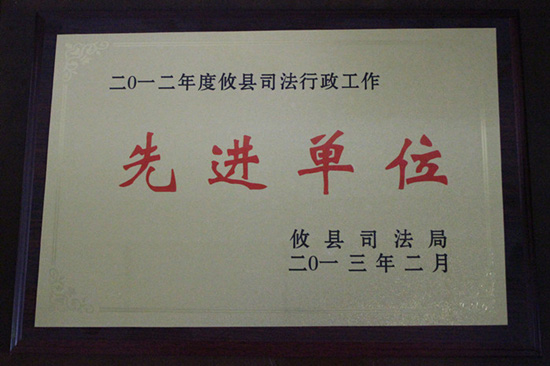 二〇一二年度攸县司法行政工作
先进单位
攸县司法局
二〇一三年二月